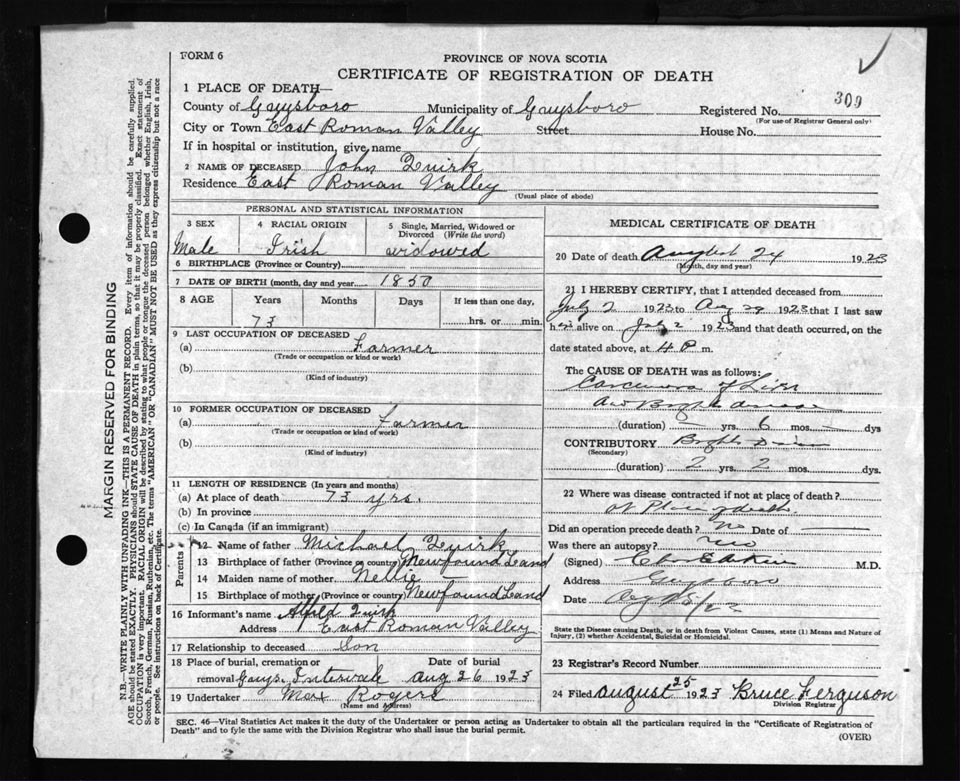 FORM 6
PROVINCE OF NOVA SCOTIA
CERTIFICATE OF REGISTRATION OF DEATH
1 PLACE OF DEATH—
County of Guysboro Municipality of Guysboro Registered No. 309
(For use of Registrar General only)
City or Town East Roman Valley Street House No.
If in hospital or institution, give name
2 NAME OF DECEASED John Quirk
Residence East Roman Valley
(Usual place of abode)
PERSONAL AND STATISTICAL INFORMATION
3 SEX 4 RACIAL ORIGIN 5 Single, Married, Widowed or Divorced (Write the word)
Male Irish widowed
6 BIRTHPLACE (Province or Country)
7 DATE OF BIRTH (month, day and year) 1850
8 AGE Years Months Days If less than one day,
73 hrs. or min.
9 LAST OCCUPATION OF DECEASED
(a) Farmer
(Trade or occupation or kind of work)
(b)
(Kind of industry)
10 FORMER OCCUPATION OF DECEASED
(a) Farmer
(Trade or occupation or kind of work)
(b)
(Kind of industry)
11 LENGTH OF RESIDENCE (In years and months)
(a) At place of death 73 yrs.
(b) In province
(c) In Canada (if an immigrant)
Parents
12 Name of father Michael Quirk
13 Birthplace of father (Province or country) Newfoundland
14 Maiden name of mother Nellie —
15 Birthplace of mother (Province or country) Newfoundland
16 Informant's name Alfred Quirk
Address East Roman Valley
17 Relationship to deceased Son
18 Place of burial, cremation or removal Guys. Intervale Date of burial Aug 26 1923
19 Undertaker Max Rogers
(Name and Address)
MEDICAL CERTIFICATE OF DEATH
20 Date of death August 24 1923
(Month, day and year)
21 I HEREBY CERTIFY, that I attended deceased from
July 2 1923 to Aug 1923 that I last saw
h alive on July 2 1923 and that death occurred, on the
date stated above, at 4 P. m.
The CAUSE OF DEATH was as follows:
Carcinoma of Liver
and Brights disease
(duration) — yrs. 6 mos. — dys
CONTRIBUTORY Brights Disease
(Secondary)
(duration) 2 yrs. 2 mos. dys.
22 Where was disease contracted if not at place of death?
at Place of death.
Did an operation precede death? no Date of —
Was there an autopsy? no
(Signed) M.D.
Address Guysboro
Date
State the Disease causing Death, or in death from Violent Causes, state (1) Means and Nature of
Injury, (2) whether Accidental, Suicidal or Homicidal.
23 Registrar's Record Number
24 Filed August 25 1923 Bruce Ferguson
Division Registrar
SEC. 46—Vital Statistics Act makes it the duty of the Undertaker or person acting as Undertaker to obtain all the particulars required in the "Certificate of Registration of
Death" and to fyle the same with the Division Registrar who shall issue the burial permit.
(OVER)
MARGIN RESERVED FOR BINDING
N.B.—WRITE PLAINLY WITH UNFADING INK—THIS IS A PERMANENT RECORD. Every item of information should be carefully supplied.
AGE should be stated EXACTLY. PHYSICIANS should STATE CAUSE OF DEATH in plain terms, so that it may be properly classified. Exact statement of
OCCUPATION is very important. RACIAL ORIGIN will be described by stating to what people or tongue the deceased person belonged whether English, Irish,
Scotch, French, German, Russian, Ruthenian, etc. The terms "AMERICAN" OR "CANADIAN" MUST NOT BE USED as they express citizenship but not a race
or people. See instructions on back of Certificate.